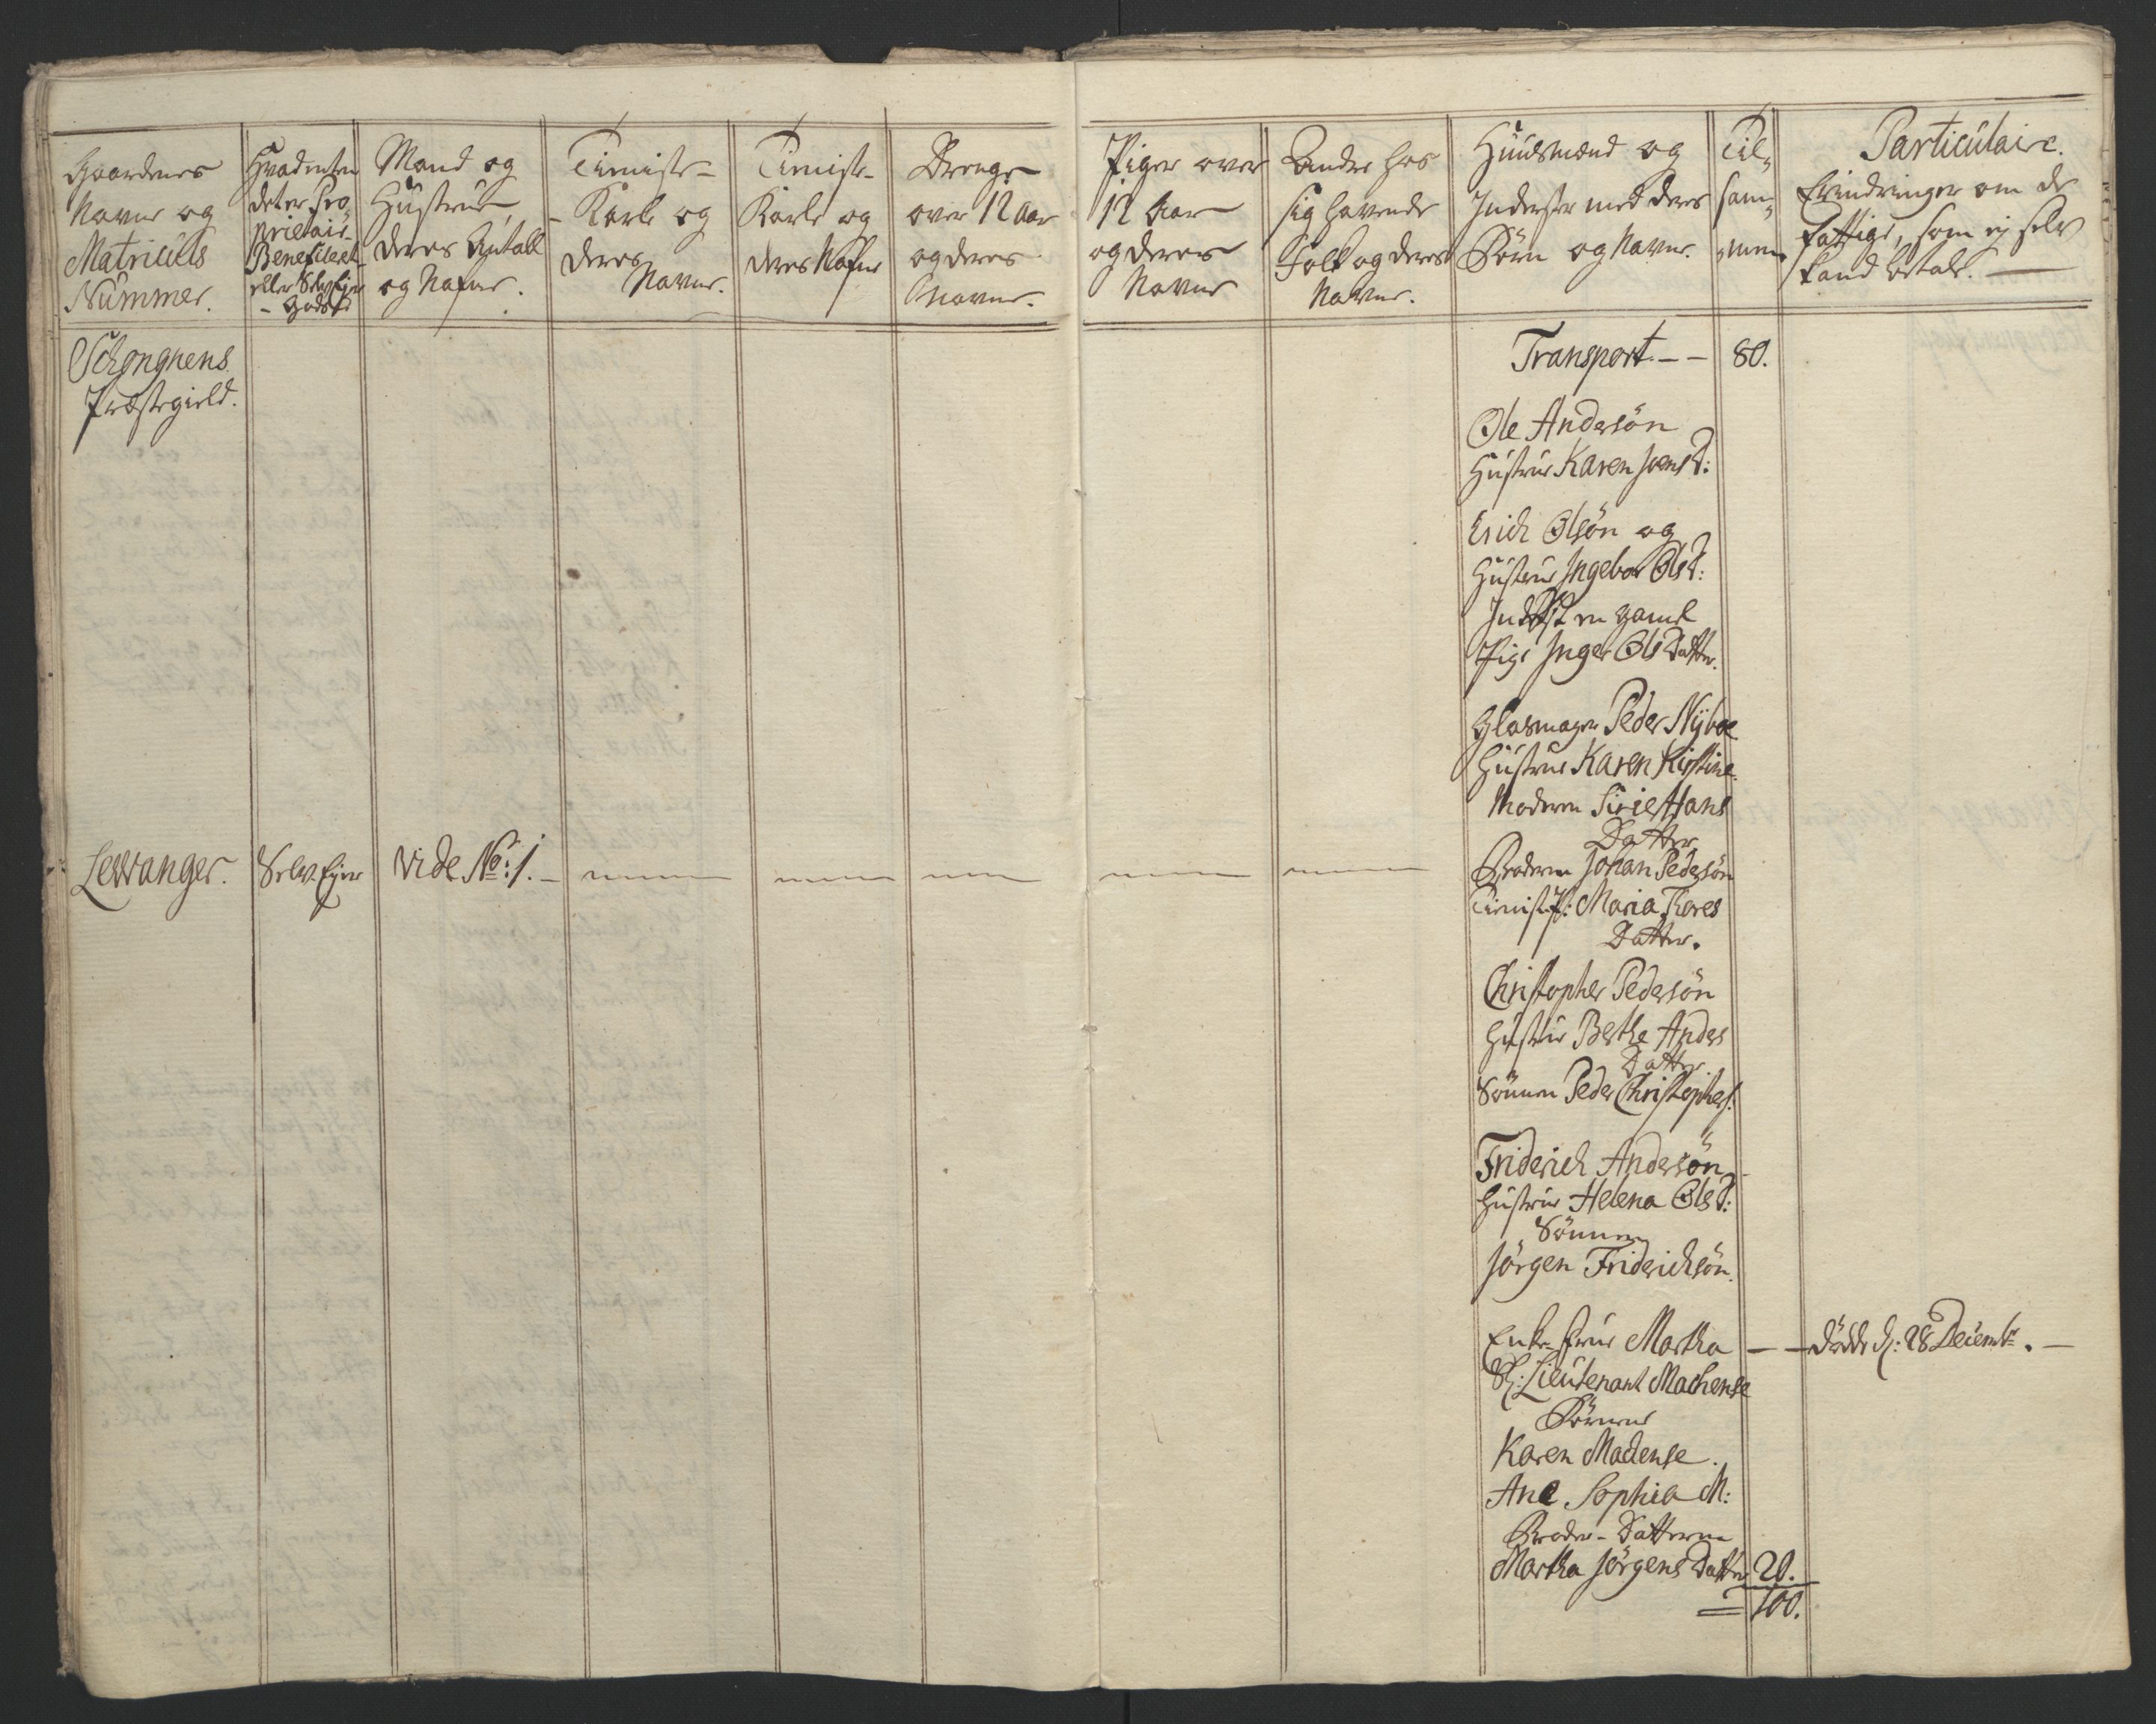 Gaardenes
Navne og
Matriculs
Nummer.
Hvad enten
det er Pro
prietair
Beneficeret
eller Selv Ejer
- Gods Ed
Mand og
Hustrue,
deres Antall
og Nafne.
Tieniste-
- Karle og
deres
Navne.
Tieniste-
Karle og
deres Nafne
Drenge
over 12 Aar
og deres
Navne.
Piger over
12 Aar
og deres
Navne
Andre hos
sig havende
Folk og deres
Navne.
Huusmænd og
Inderster med deres
Börn og Navne.
Til„
sam„
„men
Particulaire.
Erindringer om de
Fattige, som ej selv
kand betale.
Schongnens
Præstegield.
Transport. — — 80.
Ole Andersön
Hustrue Karen Joens D:
Erich Olsön og
Hustrue Ingebor Ols D:
Inderst en gamel
Pige Inger Ols Datter.
Glasmager Peder Nÿboe
Hustrue Karen Kirstine.
Moderen Sirie Hans
Datter
Levvanger. Selv Ejer Vide No: 1. —
Broderen Johan Pedersön
Tienist P: Maria Thores
Datter.
Christopher Pedersön
Hustrue Berthe Anders
Datter.
Sönnen Peder Christophers:
Friderich Andersön
Hustrue Helena Ols D:
Sönnen
Jörgen Friderichsön.
Enke-Frue Martha — — döde d: 28 Decembr. —
Sl: Lieutenant Machense
Börnene
Karen Machense.
Ane Sophia M:
Broder-Datteren
Martha Jörgens Datter 20.
= 100.